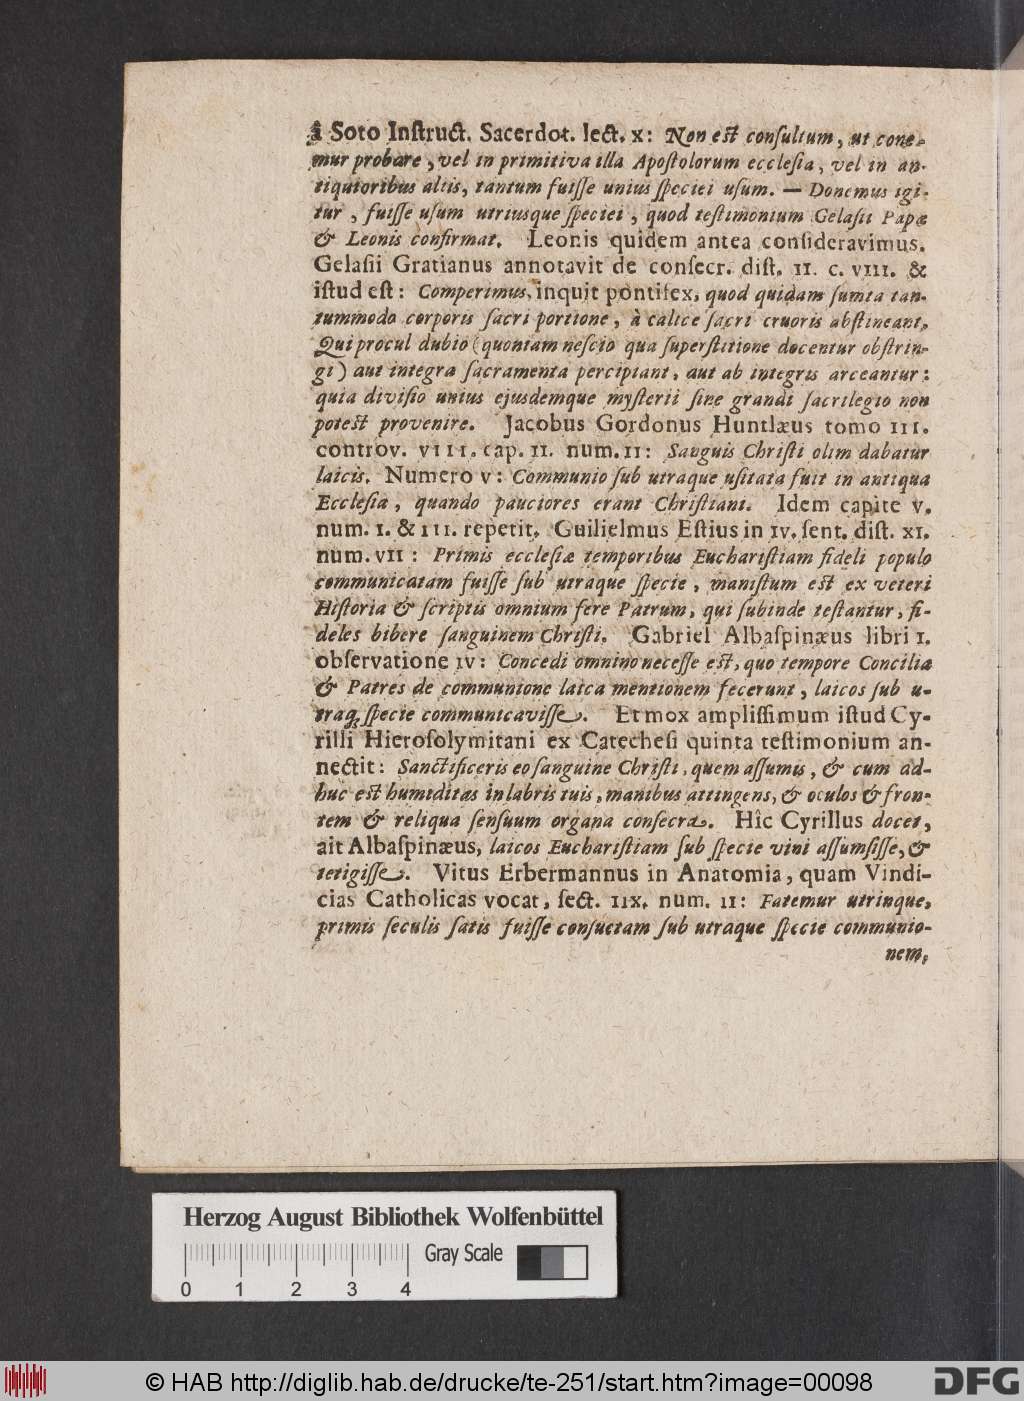 â Soto Inſtruct. Sacerdot. lect. x: Non eſt conſultum, ut cone-
mur probare, vel in primitiva illa Apoſtolorum eccleſia, vel in an-
tiquioribus aliis, tantum fuiſſe unius ſpeciei uſum. — Donemus igi-
tur, fuiſſe uſum utriusque ſpeciei, quod teſtimonium Gelaſii Papæ
& Leonis confirmat. Leonis quidem antea conſideravimus.
Gelaſii Gratianus annotavit de conſecr. diſt. II. c. VIII. &
iſtud eſt: Comperimus, inquit pontifex, quod quidam ſumta tan-
tummodo corporis ſacri portione, à calice ſacri cruoris abſtineant,
Qui procul dubio (quoniam neſcio qua ſuperſtitione docentur obſtrin-
gi) aut integra ſacramenta percipiant, aut ab integris arceantur:
quia diviſio unius ejusdemque myſterii ſine grandi ſacrilegio non
poteſt provenire. Jacobus Gordonus Huntlæus tomo III.
controv. VIII. cap. II. num. II: Sanguis Chriſti olim dabatur
laicis. Numero V: Communio ſub utraque uſitata fuit in antiqua
Eccleſia, quando pauciores erant Chriſtiani. Idem capite V.
num. I. & III. repetit. Guilielmus Eſtius in IV. ſent. diſt. XI.
num. VII: Primis eccleſiæ temporibus Euchariſtiam fideli populo
communicatam fuiſſe ſub utraque ſpecie, maniſtum eſt ex veteri
Hiſtoria & ſcriptis omnium fere Patrum, qui ſubinde teſtantur, fi-
deles bibere ſanguinem Chriſti. Gabriel Albaſpinæus libri I.
obſervatione IV: Concedi omnino neceſſe eſt, quo tempore Concilia
& Patres de communione laica mentionem fecerunt, laicos ſub u-
traq; ſpecie communicaviſſe. Et mox ampliſſimum iſtud Cy-
rilli Hieroſolymitani ex Catecheſi quinta teſtimonium an-
nectit: Sanctificeris eo ſanguine Chriſti, quem aſſumis, & cum ad-
huc eſt humiditas in labris tuis, manibus attingens, & oculos & fron-
tem & reliqua ſenſuum organa conſecra. Hîc Cyrillus docet,
ait Albaſpinæus, laicos Euchariſtiam ſub ſpecie vini aſſumſiſſe, &
tetigiſſe. Vitus Erbermannus in Anatomia, quam Vindi-
cias Catholicas vocat, ſect. IIX. num. II: Fatemur utrinque,
primis ſeculis ſatis fuiſſe conſuetam ſub utraque ſpecie communio-
nem,
Herzog August Bibliothek Wolfenbüttel
Gray Scale
0 1 2 3 4
© HAB http://diglib.hab.de/drucke/te-251/start.htm?image=00098
DFG